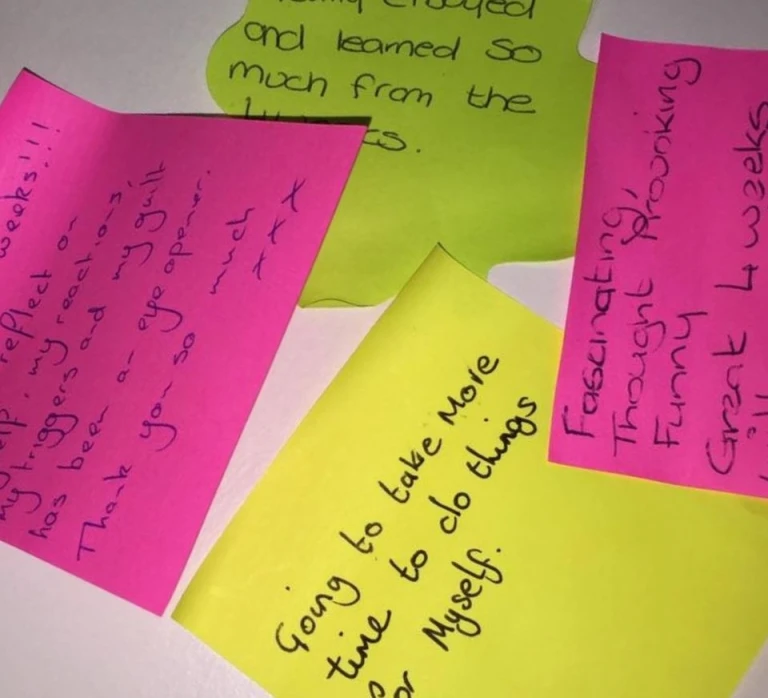 enjoyed
and learned so
much from the
weeks!!!
reflect on
my reactions,
my triggers and my guilt
has been an eye opener.
Thank you so much
xxx
Going to take More
time to do things
for Myself.
Fascinating,
Thought Provonking
Funny
Great 4 weeks